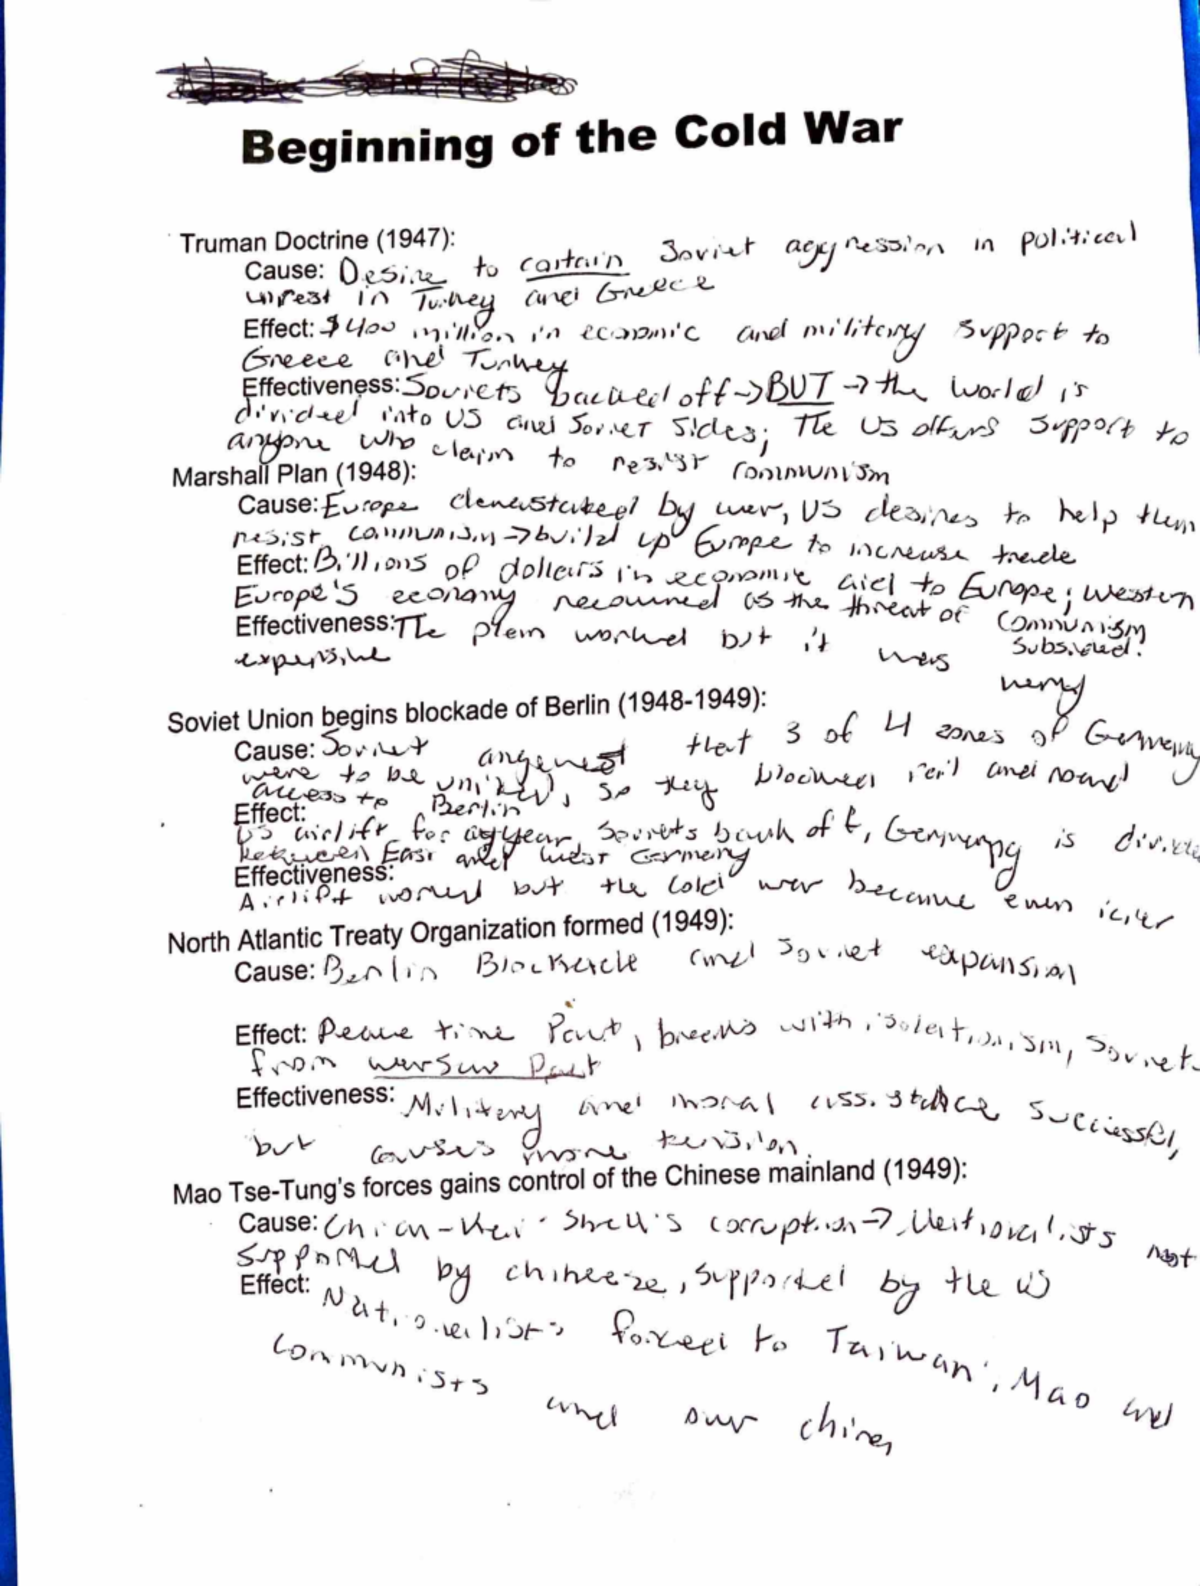 Beginning of the Cold War
Truman Doctrine (1947):
Cause: Desire to contain Soviet aggression in political
unrest in Turkey and Greece
Effect: $400 million in economic and military support to
Greece and Turkey
Effectiveness: Soviets backed off → BUT → the world is
divided into US and Soviet sides; The US offers support to
anyone who claim to resist communism
Marshall Plan (1948):
Cause: Europe devastated by war, US desires to help them
resist communism → build up Europe to increase trade
Effect: Billions of dollars in economic aid to Europe; western
Europe's economy recovered as the threat of communism
subsided.
Effectiveness: The plan worked but it was very
expensive
Soviet Union begins blockade of Berlin (1948-1949):
Cause: Soviet angered that 3 of 4 zones of Germany
were to be unified, so they blocked rail and road
access to Berlin
Effect:
US airlift for a year, Soviets back off, Germany is divided
between East and West Germany
Effectiveness:
Airlift worked but the cold war became even icier
North Atlantic Treaty Organization formed (1949):
Cause: Berlin Blockade and Soviet expansion
Effect: Peace time Pact, breaks with isolationism, Soviets
from warsaw Pact
Effectiveness: Military and moral assistance successful,
but causes more tension.
Mao Tse-Tung's forces gains control of the Chinese mainland (1949):
Cause: Chian-Kai-Shek's corruption → Nationalists not
supported by chineeze, supported by the US
Effect:
Nationalists forced to Taiwan, Mao and
communists and our china